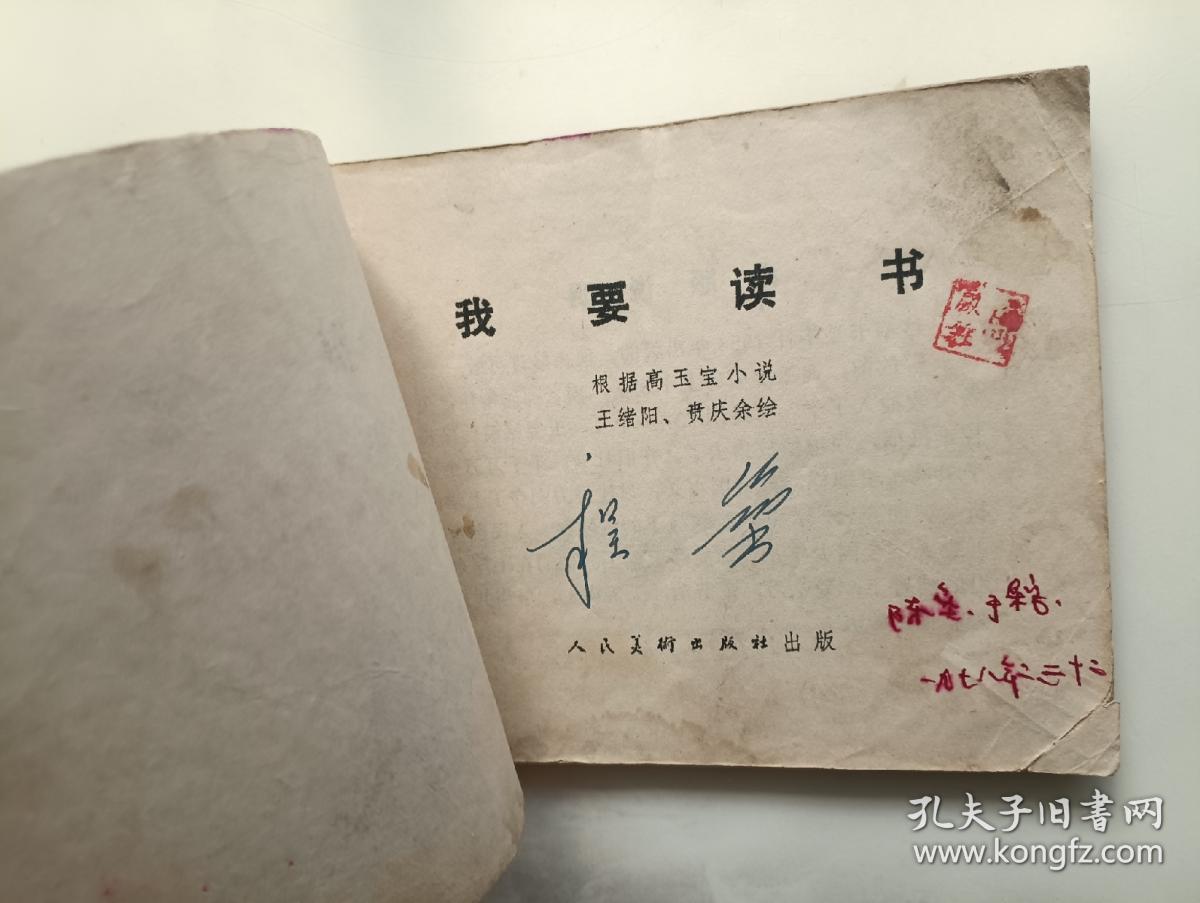 我要读书
根据高玉宝小说
王绪阳、贲庆余绘
程
人民美術出版社出版
陈
一九七八年二三十二
孔夫子旧书网
www.kongfz.com